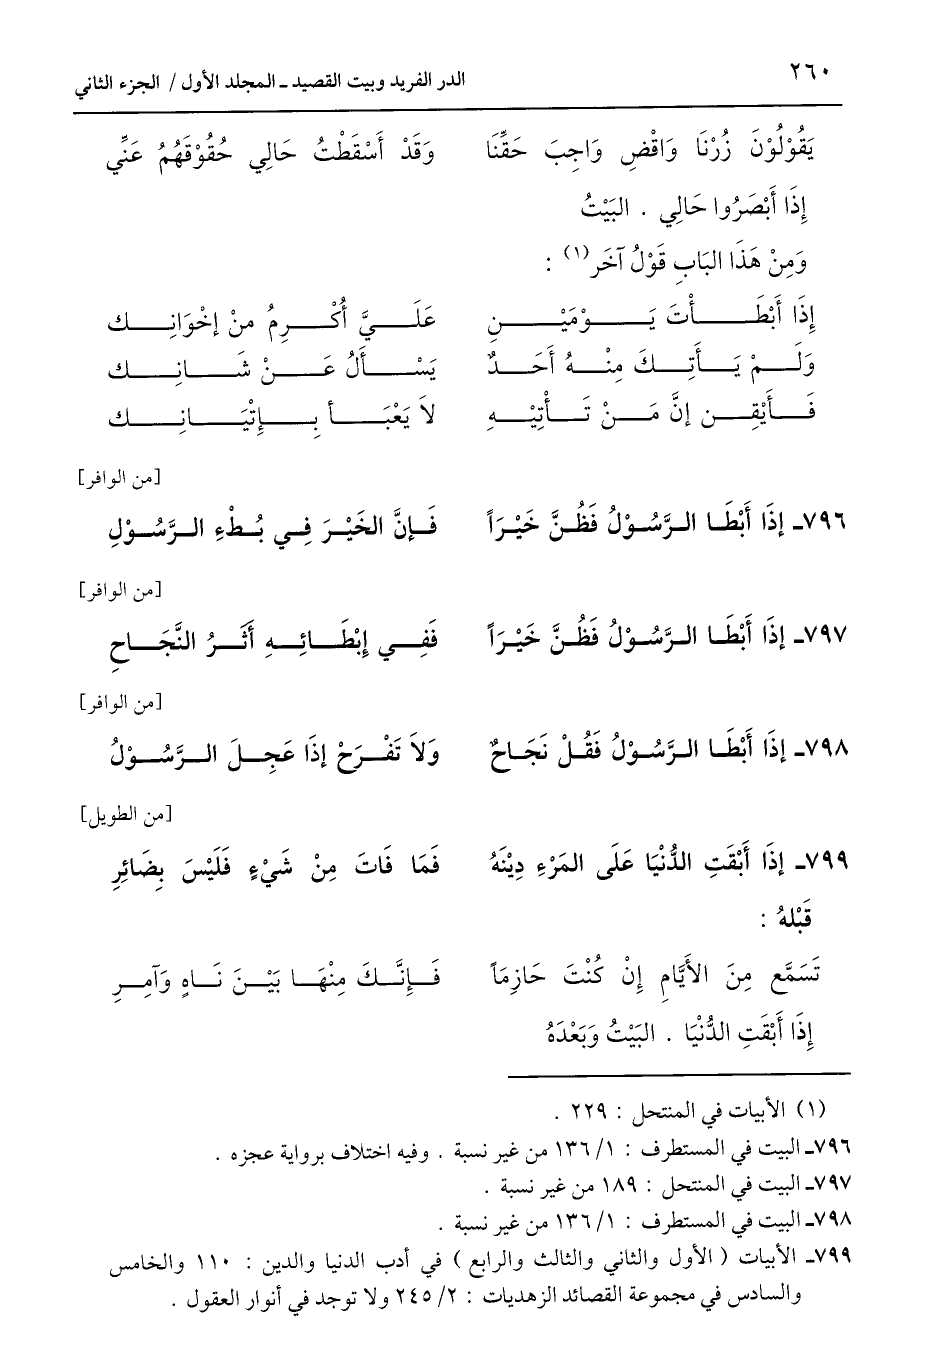 ٢٦٠ الدر الفريد وبيت القصيد ـ المجلد الأول / الجزء الثاني
يَقُوْلُوْنَ زُرْنَا وَاقْضِ وَاجِبَ حَقِّنَا وَقَدْ أَسْقَطْتُ حَالِي حُقُوْقَهُمُ عَنِّي
إِذَا أَبْصَرُوا حَالِي . البَيْتُ
وَمِنْ هَذَا البَابِ قَوْلُ آخَر(١) :
إِذَا أَبْطَـــأْتَ يَـــوْمَيْـــنِ عَلَـــيَّ أُكْـــرِمُ مـنْ إخْوَانِـــك
وَلَـــمْ يَـــأْتِـــكَ مِنْـــهُ أَحَـــدٌ يَسْـــأَلُ عَـــنْ شَـــانِـــك
فَـــأَيْقِـــن إنَّ مَـــنْ تَـــأْتِيْـــهِ لاَ يَعْبَـــأ بِـــإِتْيَـــانِـــك
[من الوافر]
٧٩٦ـ إِذَا أَبْطَـا الـرَّسُـوْلُ فَظُـنَّ خَيْـرَاً فَـإنَّ الخَيْـرَ فِـي بُـطْءِ الـرَّسُـوْلِ
[من الوافر]
٧٩٧ـ إِذَا أَبْطَـا الـرَّسُـوْلُ فَظُـنَّ خَيْـرَاً فَفِـي إِبْطَـائِـهِ أَثَـرُ النَّجَـاحِ
[من الوافر]
٧٩٨ـ إِذَا أَبْطَـا الـرَّسُـوْلُ فَقُـلْ نَجَـاحٌ وَلاَ تَفْـرَحْ إِذَا عَجِـلَ الـرَّسُـوْلُ
[من الطويل]
٧٩٩ـ إِذَا أَبْقَتِ الدُّنْيَا عَلَى المَرْءِ دِيْنَهُ فَمَا فَاتَ مِنْ شَيْءٍ فَلَيْسَ بِضَائِرِ
قَبْلهُ :
تَسَمَّع مِنَ الأَيَّامِ إِنْ كُنْتَ حَازِمَاً فَـإِنَّـكَ مِنْهَـا بَيْـنَ نَـاهٍ وَآمِـرِ
إِذَا أَبْقَتِ الدُّنْيَا . البَيْتُ وَبَعْدَهُ
(١) الأبيات في المنتحل : ٢٢٩ .
٧٩٦ـ البيت في المستطرف : ١/ ١٣٦ من غير نسبة . وفيه اختلاف برواية عجزه .
٧٩٧ـ البيت في المنتحل : ١٨٩ من غير نسبة .
٧٩٨ـ البيت في المستطرف : ١/ ١٣٦ من غير نسبة .
٧٩٩ـ الأبيات ( الأول والثاني والثالث والرابع ) في أدب الدنيا والدين : ١١٠ والخامس
والسادس في مجموعة القصائد الزهديات : ٢/ ٢٤٥ ولا توجد في أنوار العقول .